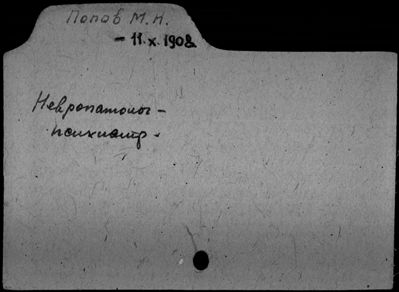 Попов М.Н.
- 11.X.1902
Невропатолог-
психиатр.